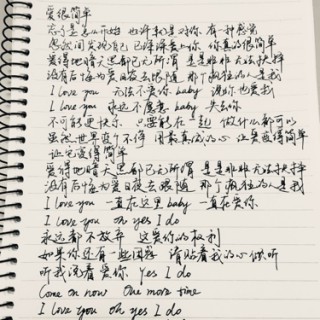 爱很简单
忘了是怎么开始 也许就是对你 有一种感觉
忽然间发现自己 已深深爱上你 真的很简单
爱得地暗天黑都已无所谓 是是非非无法抉择
没有后悔为爱日夜去跟随 那个疯狂的人是我
I love you 无法不爱你 baby 说你也爱我
I love you 永远不愿意 baby 失去你
不可能更快乐 只要能在一起 做什么都可以
虽然世界变个不停 用最真诚的心 让爱变得简单
让爱变得简单
爱得地暗天黑都已无所谓 是是非非无法抉择
没有后悔为爱日夜去跟随 那个疯狂的人是我
I love you 一直在这里 baby 一直在爱你
I love you oh yes I do
永远都不放弃 这爱你的权利
如果你还有一些困惑 请贴着我的心倾听
听我说着爱你 Yes I do
Come on now One more time
I love you oh yes I do